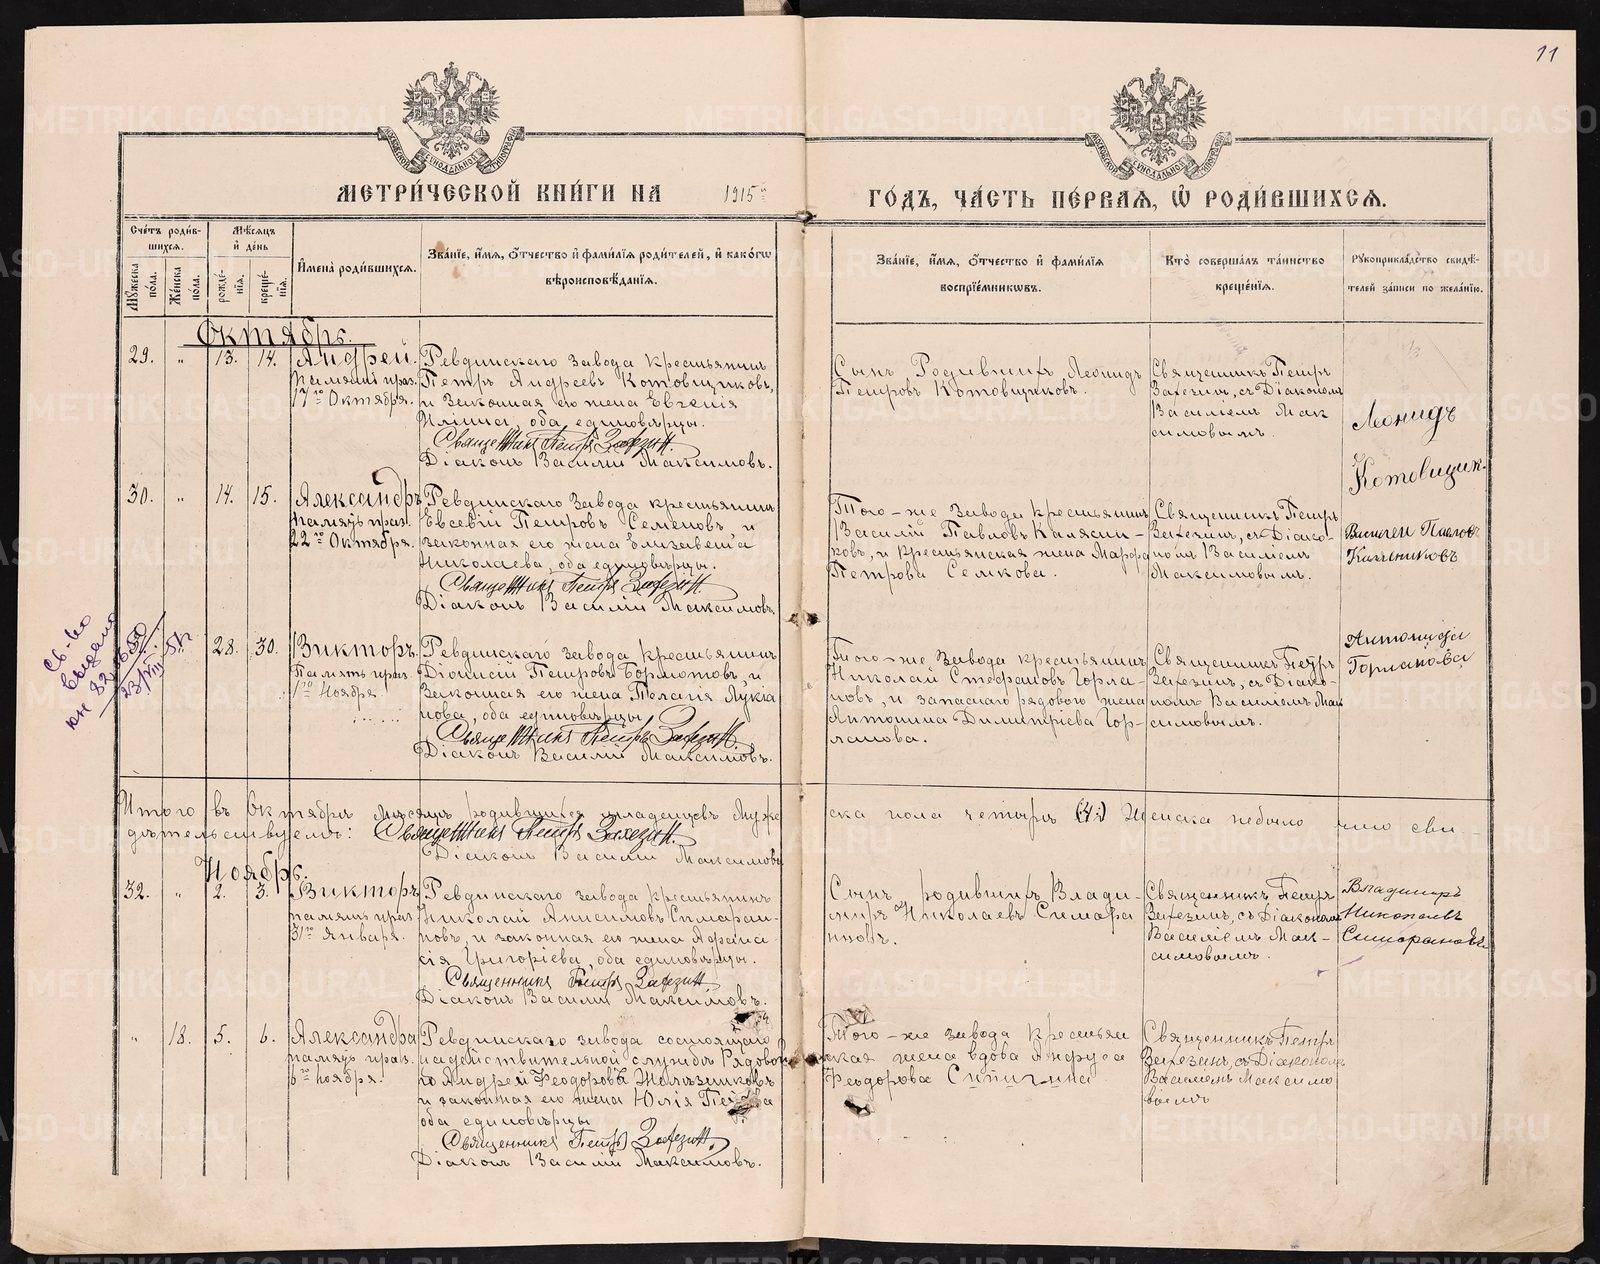 11
МЕТРИ́ЧЕСКОЙ КНИ́ГИ НА 1915й ГО́ДЪ, ЧА́СТЬ ПЕ́РВАѦ, Ѡ҆ РОДИ́ВШИХСѦ.
Сче́тъ роди́вшихся.
Му́жеска по́ла.
Же́нска по́ла.
Мѣ́сяцъ и҆ де́нь
рожде́нїѧ.
креще́нїѧ.
И҆мена̀ роди́вшихсѧ.
Зва́нїе, и҆́мѧ, ѻ҆́тчество и҆ фами́лїѧ роди́телей, и҆ како́гѡ
вѣроисповѣ́данїѧ.
Зва́нїе, и҆́мѧ, ѻ҆́тчество и҆ фами́лїѧ
воспрїе́мникѡвъ.
Кто̀ соверша́лъ та́инство
креще́нїѧ.
Рꙋкоприкла́дство свидѣ́-
телей за́писи по жела́нїю.
Октябрь.
29. " 13. 14. Андрей.
память праз.
17го Октября.
Ревдинскаго завода крестьянин
Петръ Андреевъ Котовщиковъ,
и законная его жена Евгенія
Ильина, оба единовѣрцы.
Священникъ Петръ
Діаконъ Василій Максимовъ.
Сынъ Родивших Леонидъ
Петровъ Котовщиковъ.
Священникъ Петръ
съ Діакономъ
Василіем Мак
симовымъ.
Леонидъ
Котовщик.
30. " 14. 15. Александръ
память праз.
22го Октября.
Ревдинскаго завода крестьянин
Евсевій Петровъ Семеновъ и
законная его жена Елизавета
Николаева, оба единовѣрцы.
Священникъ Петръ
Діаконъ Василій Максимовъ
Того-же завода крестьянинъ
Василій Павловъ
ковъ, и крестьянская жена Марфа
Петрова Семкова.
Священникъ Петръ
съ Діако-
номъ Василіемъ
Максимовымъ.
Павловъ
Св-во
выдано
28. 30. Викторъ.
Память праз.
1го Ноября.
Ревдинскаго завода крестьянинъ
Діонисій Петровъ Бормотовъ, и
законная его жена Пелагія Лукіа
нова, оба единовѣрцы.
Священникъ Петръ
Діаконъ Василій Максимовъ.
Того-же завода крестьянинъ
Николай Стефановъ Горла-
новъ, и запаснаго рядового жена
Антонина Димитріева Гор-
ланова.
Священникъ Петръ
съ Діако-
номъ Василіемъ Мак
симовымъ.
Антонида
Горланова
Итого въ Октябрѣ мѣсяцѣ родившихся младенцевъ Муже
ска пола четыре (4:) Женска небыло что сви-
дѣтельствуемъ: Священникъ Петръ
Діаконъ Василій Максимовъ
Ноябрь.
32. " 2. 3. Викторъ
память праз
31го Января.
Ревдинскаго завода крестьянинъ
Николай Анисимовъ Симаран-
новъ, и законная его жена
Григоріева, оба единовѣрцы.
Священникъ Петръ
Діаконъ Василій Максимовъ.
Сынъ родившихъ Влади-
міръ Николаевъ Симара
нновъ.
Священникъ Петръ
съ Діакономъ
Василіемъ Мак-
симовымъ.
Владимиръ
Николаевъ
" 18. 5. 6. Александра
память праз.
6го ноября.
Ревдинскаго завода состоящаго
на дѣйствительной службѣ Рядовой
Андрей Феодоровъ
и законная его жена Юлія
оба единовѣрцы
Священникъ Петръ
Діаконъ Василій Максимовъ.
Того-же завода крестьян
ская жена вдова
Феодорова
Священникъ Петръ
съ Діакономъ
Василіемъ Максимо
вымъ